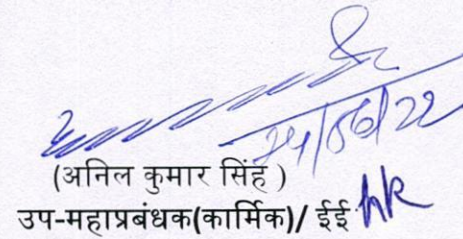 24/06/22
(अनिल कुमार सिंह )
उप-महाप्रबंधक(कार्मिक)/ ईई